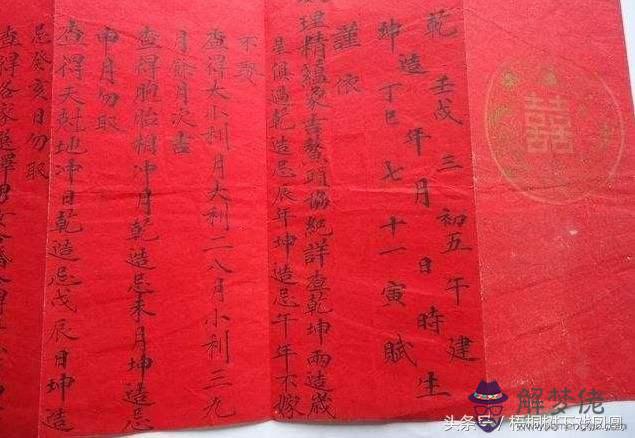 囍
乾 壬戌 三 初五 午 建
造 年 月 日 時 生
坤 丁巳 七 十一 寅 賦
謹依
理精蕴象吉鰲頭協紀詳查乾坤兩造歲
星俱過乾造忌辰年坤造忌午年不嫁
不娶
查得大小利月大利二八月小利三九
月餘月次吉
查得胞胎相冲月乾造忌未月坤造忌
申月勿取
查得天尅地冲日乾造忌戊辰日坤造
忌癸亥日勿取
查得各家選擇男女合婚
解梦佬
头条号/梧桐树下戏凤凰